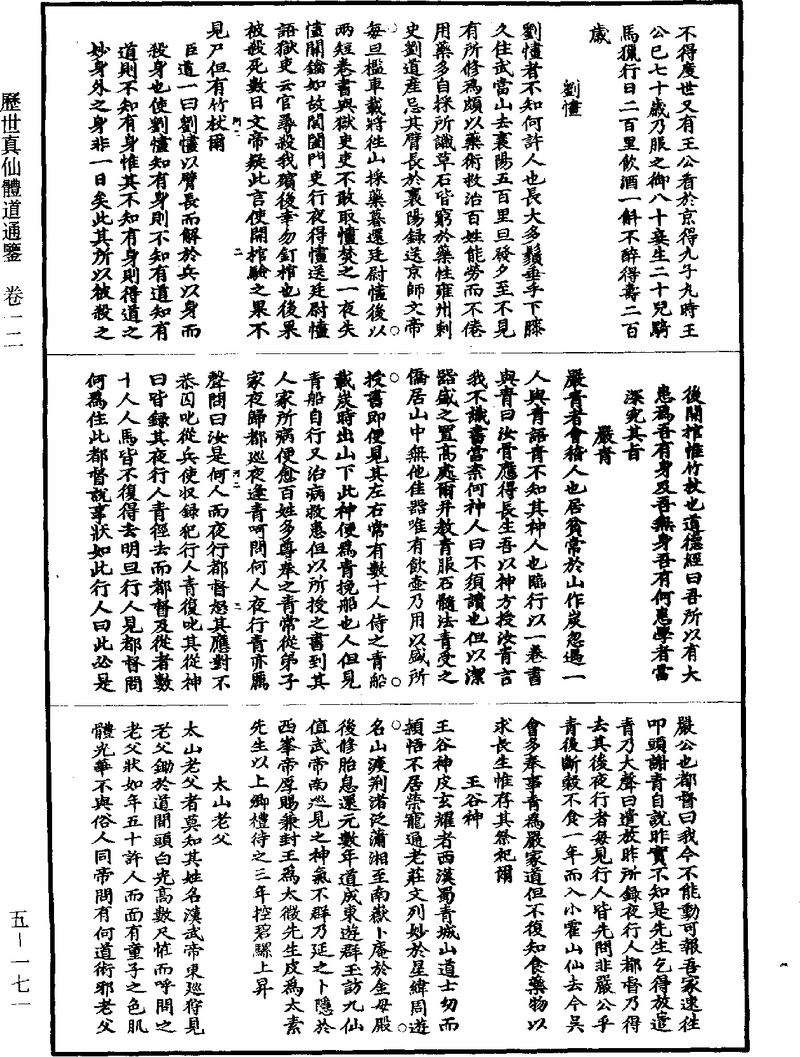 歷世真仙體道通鑒 卷一二
五—一七一
不得度世又有王公者於京得九子九時王
公已七十歲乃服之御八十妾生二十兒騎
馬獵行日二百里飲酒一斛不醉得壽二百
歲
劉憕
劉憕者不知何許人也長大多鬚垂手下膝
久住武當山去襄陽五百里旦發夕至不見
有所修為頗以藥術救治百姓能勞而不倦
用藥多自採所識草石皆窮於藥性雍州刺
史劉道產忌其臂長於襄陽錄送京師文帝
每旦檻車載將往山採藥暮還廷尉憕後以
兩短卷書與獄吏吏不敢取憕焚之一夜失
憕關鑰如故閶闔門吏行夜得憕送廷尉憕
語獄吏云官尋殺我殯後幸勿釘棺也後果
被殺死數日文帝疑此言使開棺驗之果不
見尸但有竹杖爾
臣道一曰劉憕以臂長而解於兵以身而
殺身也使劉憕知有身則不知有道知有
道則不知有身惟其不知有身則得道之
妙身外之身非一日矣此其所以被殺之
後開棺惟竹杖也道德經曰吾所以有大
患為吾有身及吾無身吾有何患學者當
深究其旨
嚴青
嚴青者會稽人也居貧常於山作炭忽遇一
人與青語青不知其神人也臨行以一卷書
與青曰汝骨應得長生吾以神方授汝青言
我不識書當柰何神人曰不須讀也但以潔
器盛之置高處爾并教青服石髓法青受之
僑居山中無他佳器唯有飲壺乃用以盛所
授書即便見其左右常有數十人侍之青船
載炭時出山下此神便為青挽船也人但見
青船自行又治病救患但以所授之書到其
人家所病便愈百姓多尊奉之青常從弟子
家夜歸都巡夜逢青呵問何人夜行青亦厲
聲問曰汝是何人而夜行都督怒其應對不
恭因叱從兵使收錄犯行人青復叱其從神
曰皆錄其夜行人青徑去而都督及從者數
十人人馬皆不復得去明旦行人見都督問
何為住此都督說事狀如此行人曰此必是
嚴公也都督曰我今不能動可報吾家速往
叩頭謝青自說昨實不知是先生乞得放遣
青乃大聲曰遣放昨所錄夜行人都督乃得
去其後夜行者每見行人皆先問非嚴公乎
青後斷穀不食一年而入小霍山仙去今吳
會多奉事青為嚴家道但不復知食藥物以
求長生惟存其祭祀爾
王谷神
王谷神皮玄耀者西漢蜀青城山道士幼而
穎悟不居榮寵通老莊文列妙於星緯周遊
名山渡荆渚泛瀟湘至南嶽卜庵於金母殿
後修胎息還元數年道成東遊群玉訪九仙
值武帝南巡見之神氣不群乃延之卜隱於
西峯帝厚賜兼封王為太微先生皮為太素
先生以上卿禮待之三年控碧騾上昇
太山老父
太山老父者莫知其姓名漢武帝東巡狩見
老父鋤於道間頭白光高數尺怪而呼問之
老父狀如年五十許人而面有童子之色肌
體光華不與俗人同帝問有何道術邪老父